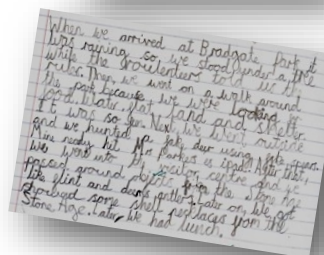 When we arrived at Bradgate Park it
was raining so we stood under a tree
while the told us the
rules. Then we went on a walk around
the park because we were looking for
food, water, flat land and shelter.
It was so fun. Next, we went outside
and we hunted fake deer using fake spears.
Mine nearly hit Mr After that,
we went into the visitor centre and we
passed around objects from the Stone Age
like flint and deer antlers. Later on, we got
showed some shell necklaces from the
Stone Age. Later, we had lunch.